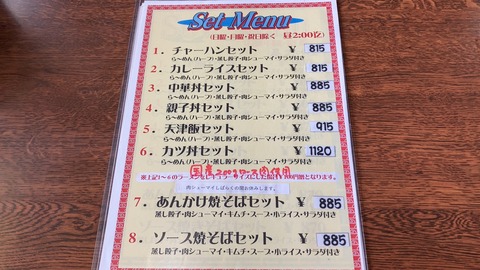 Set Menu
(日曜・土曜・祝日除く 昼2:00迄)
1. チャーハンセット ¥ 815
らーめん(ハーフ)・蒸し餃子・肉シューマイ・サラダ付き
2. カレーライスセット ¥ 815
らーめん(ハーフ)・蒸し餃子・肉シューマイ・サラダ付き
3. 中華丼セット ¥ 885
らーめん(ハーフ)・蒸し餃子・肉シューマイ・サラダ付き
4. 親子丼セット ¥ 885
らーめん(ハーフ)・蒸し餃子・肉シューマイ・サラダ付き
5. 天津飯セット ¥ 915
らーめん(ハーフ)・蒸し餃子・肉シューマイ・サラダ付き
6. カツ丼セット ¥ 1120
らーめん(ハーフ)・蒸し餃子・肉シューマイ・サラダ付き
国産 ロース肉使用
※上記1〜6のラーメンをレギュラーサイズにした場合 円増となります。
肉シューマイしばらくの間お休みします。
7. あんかけ焼そばセット ¥ 885
蒸し餃子・肉シューマイ・キムチ・スープ・ホライス・サラダ付き
8. ソース焼そばセット ¥ 885
蒸し餃子・肉シューマイ・キムチ・スープ・ホライス・サラダ付き